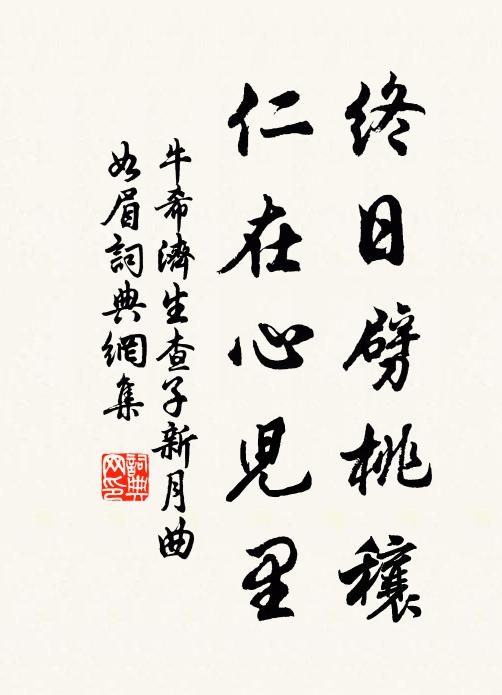 終日劈桃穰
仁在心兒里
牛希濟生查子新月曲
如眉詞典網集
詞典
网印